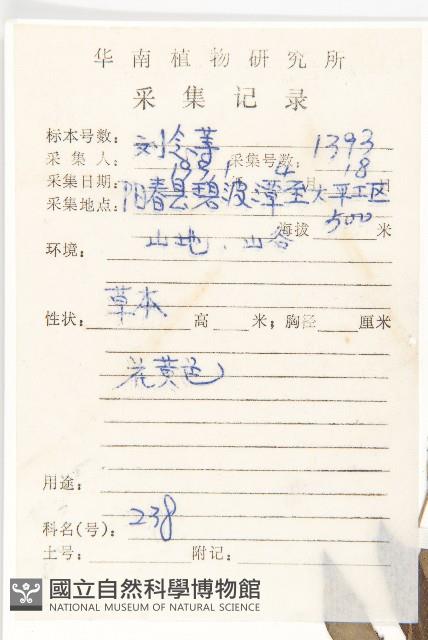 华南植物研究所
采集记录
标本号数:
采集人: 刘念等 采集号数: 1393
采集日期: 1991 年 4 月 18 日
采集地点: 阳春县碧波潭至太平工区
海拔 500 米
环境: 山地、山谷
性状: 草本 高 米; 胸径 厘米
花黄色
用途:
科名(号): 238
土号: 附记:
國立自然科學博物館
NATIONAL MUSEUM OF NATURAL SCIENCE